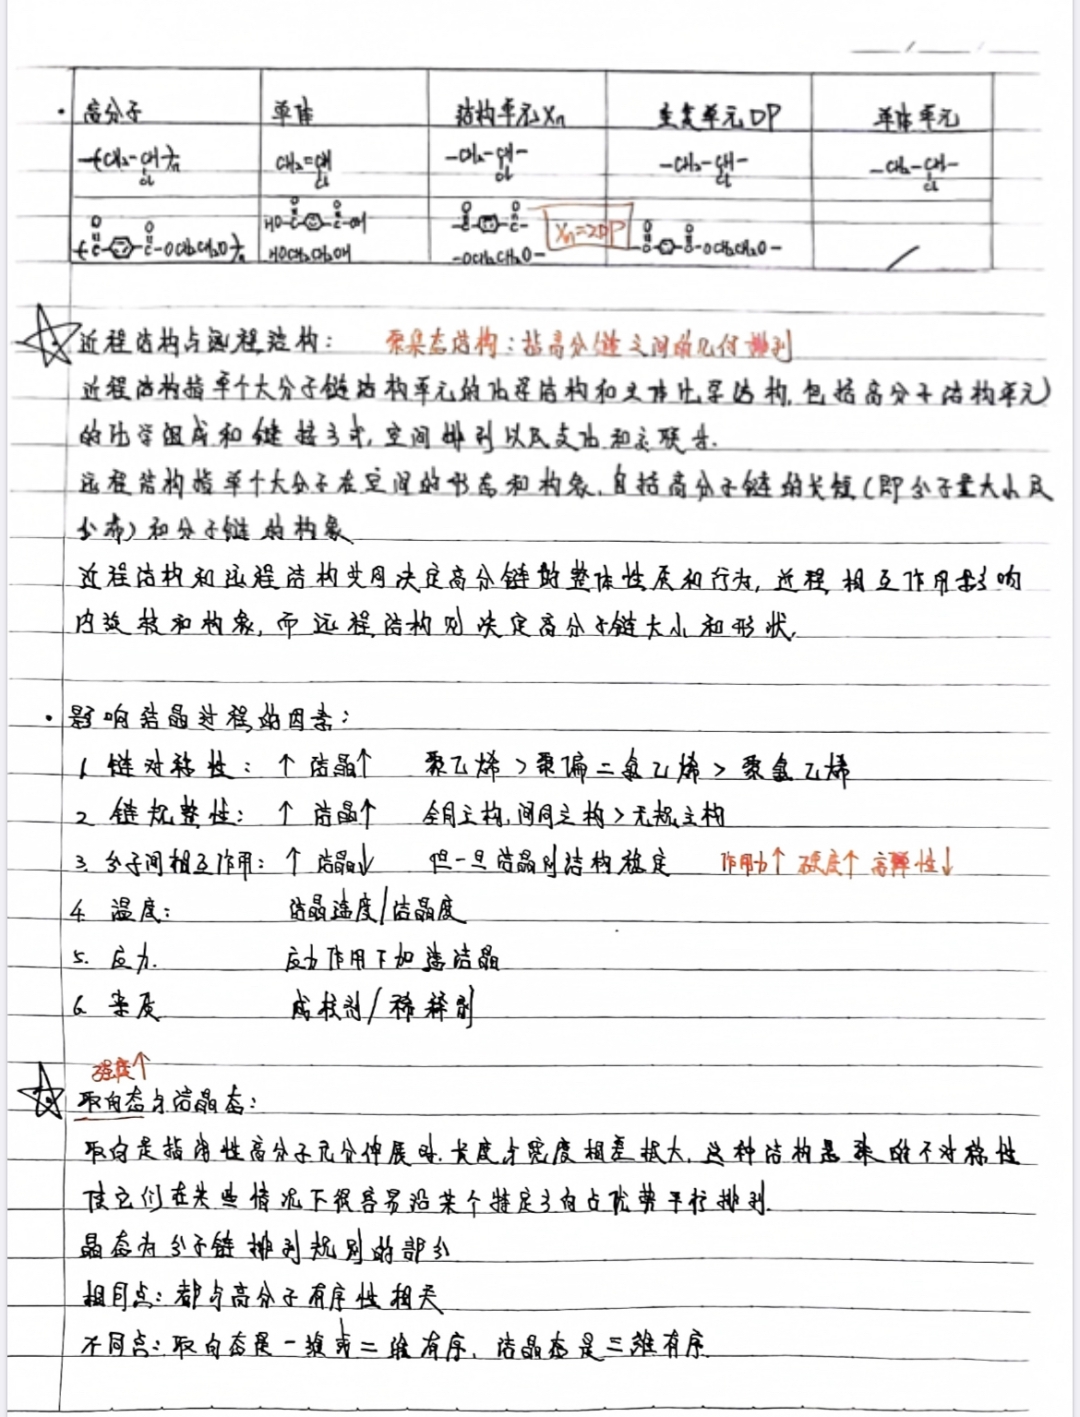 高分子 单体 结构单元Xn 重复单元DP 单体单元
-(CH₂-CH)n- CH₂=CH -CH₂-CH- -CH₂-CH- -CH₂-CH-
Cl Cl Cl Cl Cl
O O O O O O
-(C- -C-OCH₂CH₂O)n- HO-C- -C-OH -C- -C- Xn=2DP -C- -C-OCH₂CH₂O- /
HOCH₂CH₂OH -OCH₂CH₂O-
近程结构与远程结构: 聚集态结构:指高分链之间的几何排列
近程结构指单个大分子链结构单元的化学结构和立体化学结构,包括高分子结构单元)
的化学组成和键接方式,空间排列以及支化和交联等.
远程结构指单个大分子在空间的形态和构象,包括高分子链的长短(即分子量大小及
分布)和分子链的构象
近程结构和远程结构共同决定高分链的整体性质和行为,近程相互作用影响
内旋转和构象,而远程结构则决定高分子链大小和形状,
· 影响结晶过程的因素:
1. 链对称性: ↑ 结晶↑ 聚乙烯 > 聚偏二氯乙烯 > 聚氯乙烯
2 链规整性: ↑ 结晶↑ 全同立构,间同立构 > 无规立构
3. 分子间相互作用: ↑ 结晶↓ 但一旦结晶则结构稳定 作用力↑ 硬度↑ 高弹性↓
4. 温度: 结晶速度/结晶度
5. 应力. 应力作用下加速结晶
6. 杂质 成核剂/稀释剂
强度↑
取向态与结晶态:
取向是指线性高分子充分伸展时,长度与宽度相差极大,这种结构悬殊的不对称性
使它们在某些情况下很容易沿某个特定方向占优势平行排列.
晶态为分子链排列规则的部分
相同点:都与高分子有序性相关
不同点:取向态是一维或二维有序,结晶态是三维有序.